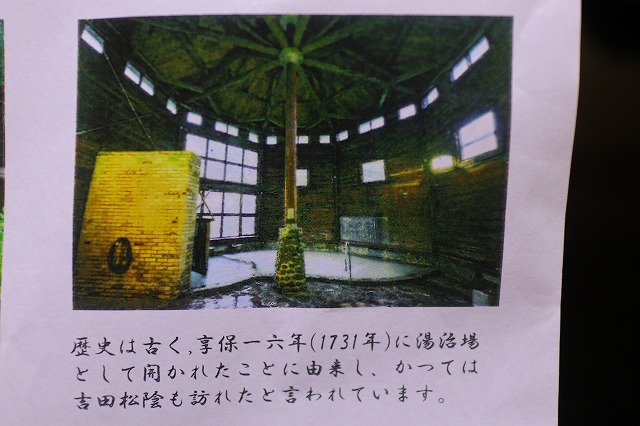 歴史は古く,享保一六年(1731年)に湯治場
として開かれたことに由来し、かつては
吉田松陰も訪れたと言われています。